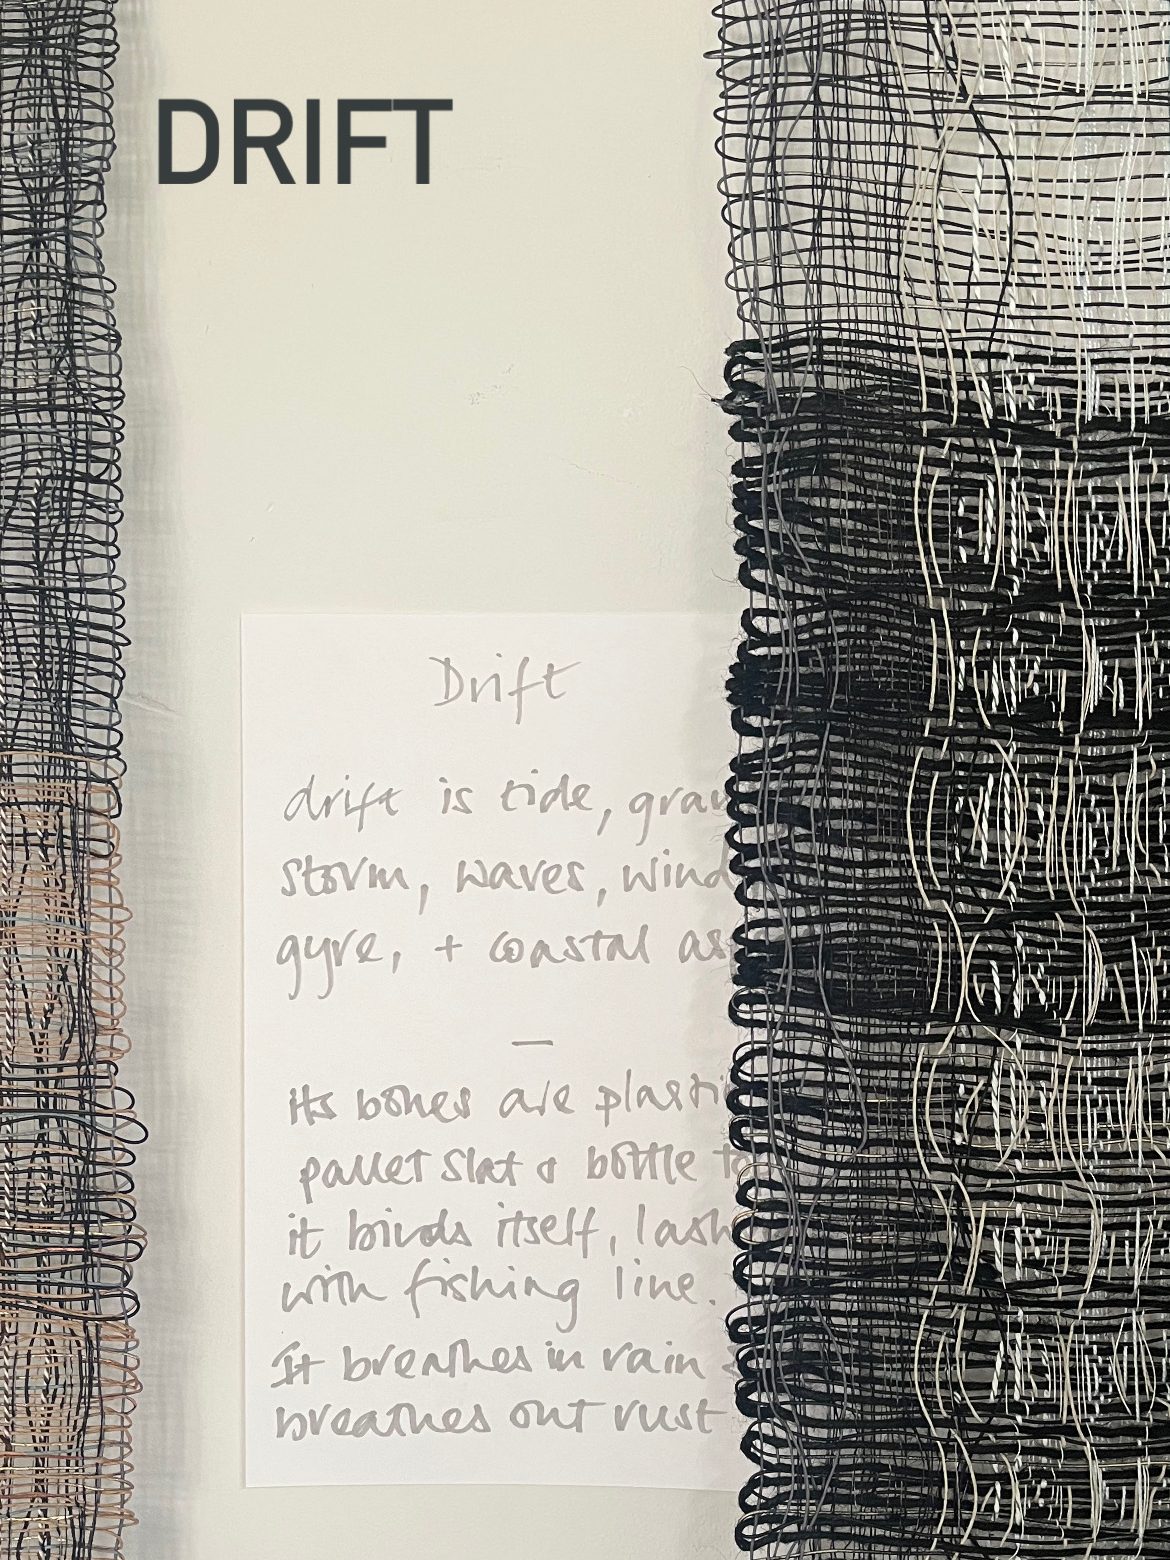 DRIFT
Drift
drift is tide, grav
storm, waves, wind
gyre, + coastal as
—
its bones are plasti
pallet slat & bottle to
it binds itself, lash
with fishing line.
It breathes in rain &
breathes out rust